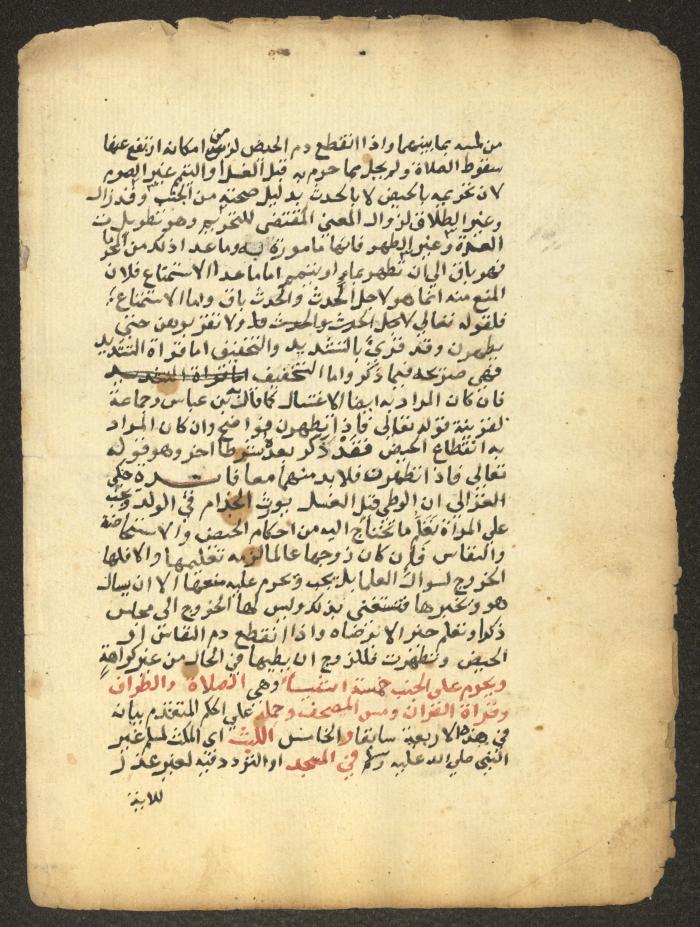 من لمسه بما بينهما واذا انقطع دم الحيض لزمن امكانه ارتفع عنها
سقوط الصلاة ولم يحل مما حرم به قبل الغسل او التيمم غير الصوم
لان تحريمه بالحيض لا بالحدث بدليل صحته من الجنب وقد زال
وغير الطلاق لزوال المعنى المقتضى للتحريم وهو تطويل
العدة وغير الطهر فانها مامورة به وما عدا ذلك من
فهو باق الى ان تطهر بماء او تتيمم اما ما عدا الاستمتاع فلان
المنع منه انما هو لاجل الحدث والحدث باق واما الاستمتاع
فلقوله تعالى لاجل الحدث والحدث ولا تقربوهن حتى
يطهرن وقد قرئ بالتشديد والتخفيف اما قراة التشديد
فهي صريحه فيما ذكر واما التخفيف اما قراة التشديد
فان كان المراد به ايضا الاغتسال كما قال بن عباس وجماعة
لقرينة قوله تعالى فاذا تطهرن فواضح وان كان المراد
به انقطاع الحيض فقد ذكر بعده شرطا اخر وهو قوله
تعالى فاذا تطهرن فلا بد منهما معا فايـدة حكى
الغزالى ان الوطى قبل الغسل يورث الجذام في الولد ويجب
على المراة تعلم ما تحتاج اليه من احكام الحيض والاستحاضة
والنفاس فان كان زوجها عالما لزمه تعليمها والا فلها
الخروج لسوال العلما بل يجب ويحرم عليه منعها الا ان يسال
هو ويخبرها فتستغنى بذلك وليس لها الخروج الى مجلس
ذكر او تعلم خير الا برضاه واذا انقطع دم النفاس او
الحيض وتطهرت فللزوج ان يطيها في الحال من غير كراهة
ويحرم على الجنب خمسة اشيا وهى الصلاة والطواف
وقراة القران ومس المصحف وحمله على الحكم المتقدم بيانه
في هذه الاربعة سابقا والخامس اللبث اى المكث لمسلم غير
النبى صلى الله عليه وسلم في المسجد او التردد فيه لغير عذر
للاية